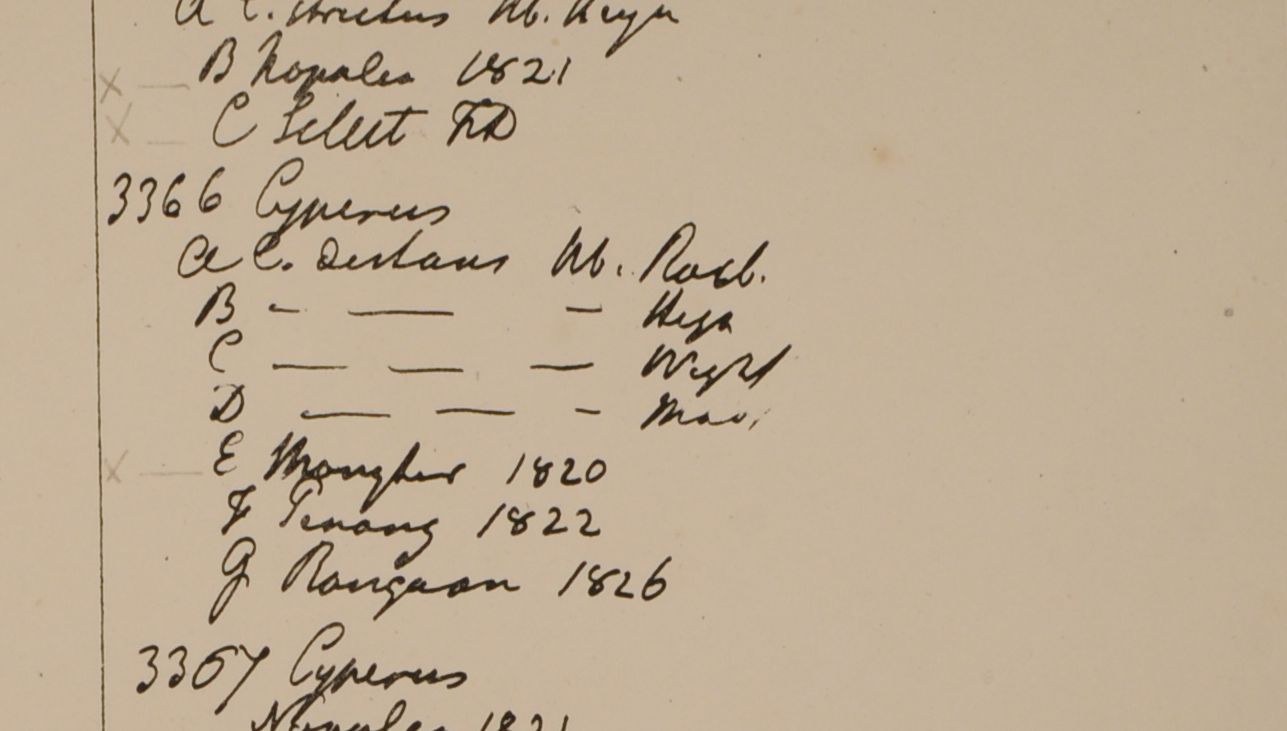 A C. strictus Hb. Heyn
B Nopalea 1821
C Silert FD
3366 Cyperus
A C. distans Hb. Roxb.
B - — - Heyn
C — — — Wight
D — — - Mad,
E Monghir 1820
F Penang 1822
G Rangoon 1826
3367 Cyperus
Nopalea 1821